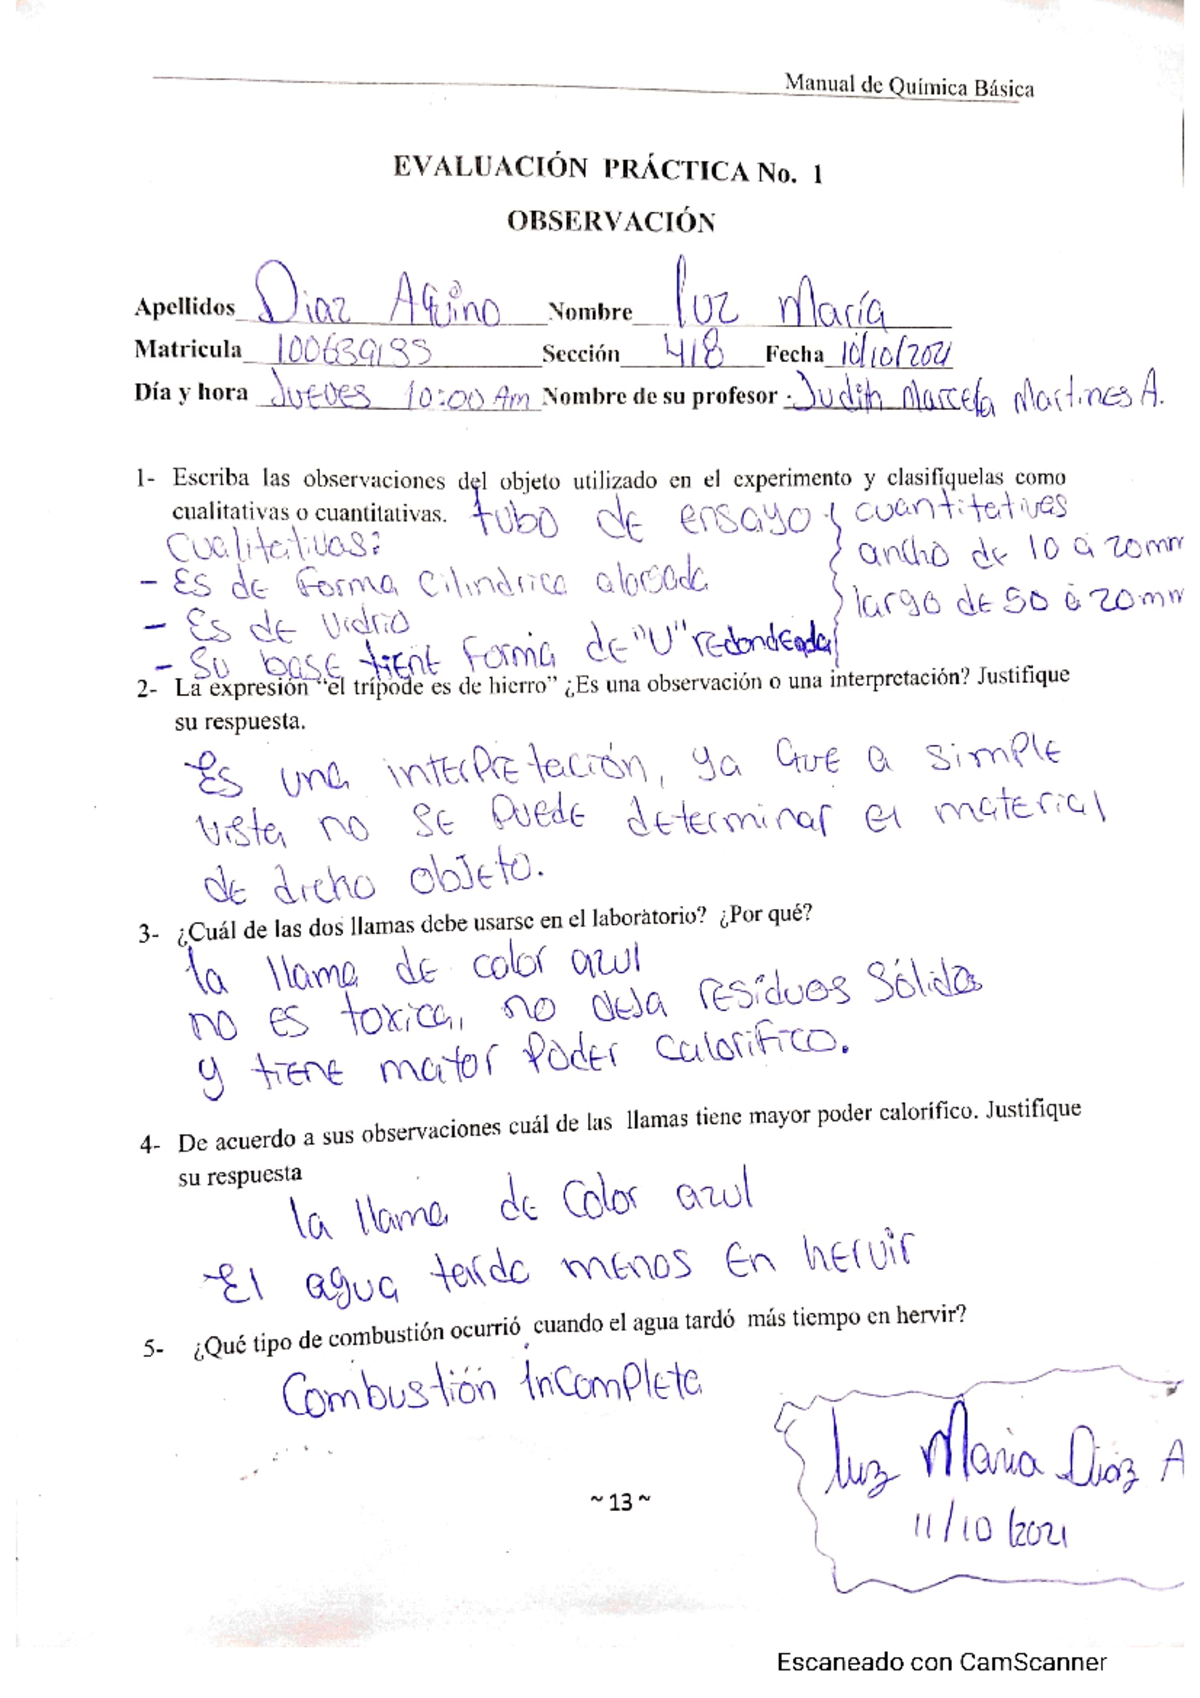 Manual de Química Básica
EVALUACIÓN PRÁCTICA No. 1
OBSERVACIÓN
Apellidos Diaz Aquino Nombre Luz María
Matricula 100639135 Sección 418 Fecha 10/10/2021
Día y hora Jueves 10:00 Am Nombre de su profesor Judith Marcela Martines A.
1- Escriba las observaciones del objeto utilizado en el experimento y clasifíquelas como
cualitativas o cuantitativas. tubo de ensayo
cualitativas:
- Es de forma cilindrica alargada
- Es de vidrio
- Su base tiene forma de "U" redondeada
cuantitativas
ancho de 10 a 20mm
largo de 50 a 20mm
2- La expresión "el trípode es de hierro" ¿Es una observación o una interpretación? Justifique
su respuesta.
Es una interpretación, ya que a simple
vista no se puede determinar el material
de dicho objeto.
3- ¿Cuál de las dos llamas debe usarse en el laboratorio? ¿Por qué?
la llama de color azul
no es toxica, no deja residuos sólidos
y tiene mator poder calorifico.
4- De acuerdo a sus observaciones cuál de las llamas tiene mayor poder calorífico. Justifique
su respuesta
la llama de color azul
El agua tardo menos en hervir
5- ¿Qué tipo de combustión ocurrió cuando el agua tardó más tiempo en hervir?
Combustión incompleta
Luz Maria Diaz A
11/10/2021
~ 13 ~
Escaneado con CamScanner